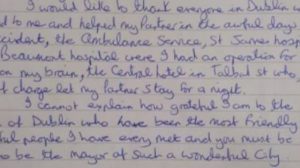 I would like to thank everyone in Dublin w
d to me and helped my Partner in the awful days
ccident, the Ambulance Service, St James hosp
Beaumont hospital were I had an operation for
on my brain, the Central hotel in Talbot st who
t charge let my Partner stay for a night.
I cannot explain how grateful I am to the
of Dublin who have been the most friendly
ful people I have every met and you must be
o be the mayor at such a wonderful City